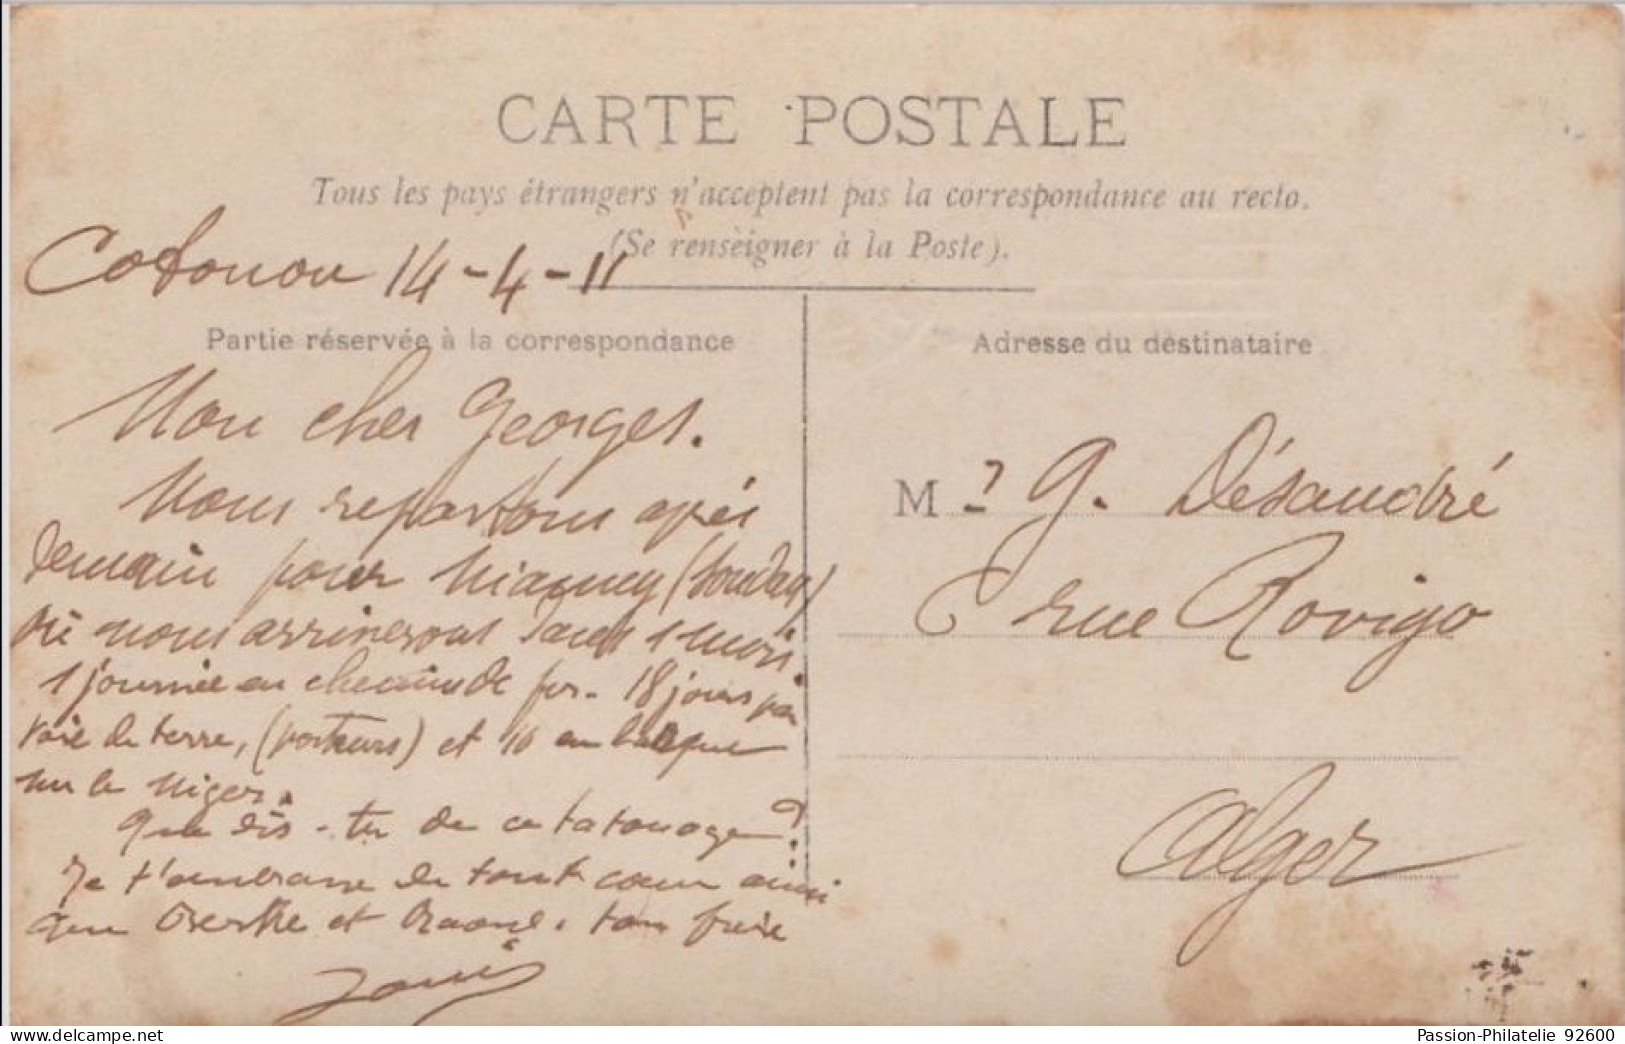 CARTE POSTALE
Tous les pays étrangers n'acceptent pas la correspondance au recto.
(Se renseigner à la Poste).
Cotonou 14-4-11
Partie réservée à la correspondance
Mon cher Georges.
Nous repartons après
demain pour Niamey (Soudan)
où nous arriverons dans 1 mois.
1 journée en chemin de fer. 18 jours par
voie de terre, (porteurs) et 16 en barque
sur le Niger.
Que dis-tu de ce tatouage?
Je t'embrasse de tout cœur ainsi
que Berthe et Raoul. ton frère
Adresse du destinataire
Mr G. Désandré
rue Rovigo
Alger
Passion-Philatelie 92600